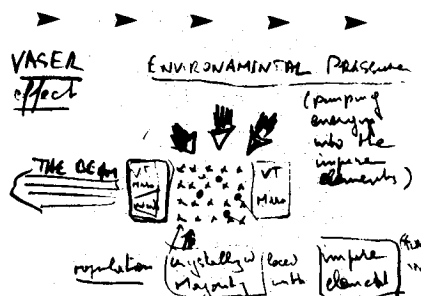 VASER
effect
ENVIRONAMENTAL PRESSURE
(pumping
energy
into the
impure
elements)
THE BEAM
VT
VT
population
crystallized
Majority
laced
with
impure
element